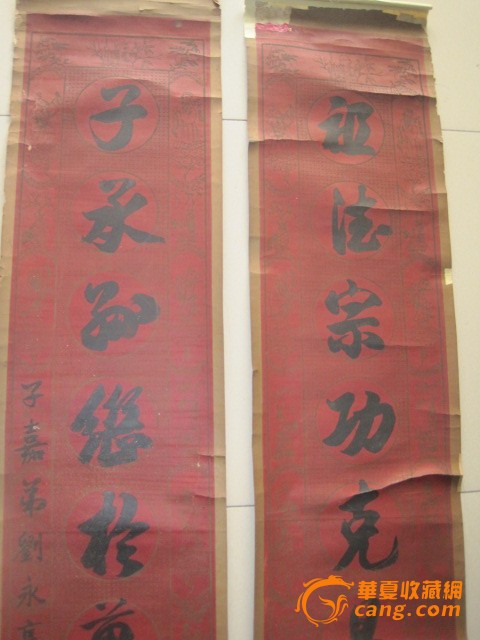 祖德宗功克
子承孫繼於
子嘉弟劉永
華夏收藏網
cang.com